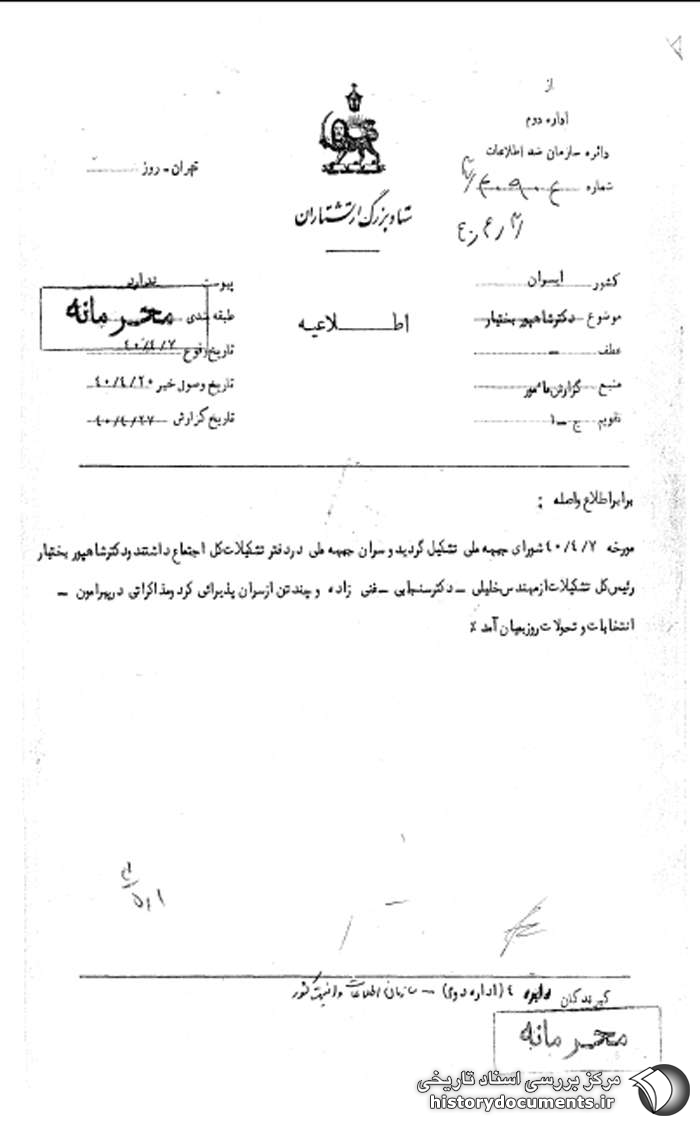 از
اداره دوم
دائره سازمان ضد اطلاعات
شماره
تهران - روز
شاه بزرگ ارتشتاران
کشور ایسران
پیوست ندارد
موضوع دکترشاهپور بختیار
اطلاعیه
طبقه بندی
محرمانه
عطف -
تاریخ وقوع ۴۰/۴/۷
منبع گزارش مأمور
تاریخ وصول خبر ۴۰/۴/۲۰
تقویم ج-۱
تاریخ گزارش ۴۰/۴/۲۷
برابر اطلاع واصله :
مورخه ۴۰/۴/۷ شورای جبهه ملی تشکیل گردید و سران جبهه ملی در دفتر تشکیلات کل اجتماع داشتند و دکتر شاهپور بختیار
رئیس کل تشکیلات از مهندس خلیلی - دکتر سنجابی - فنی زاده و چند تن از سران پذیرائی کرد و مذاکراتی در پیرامون -
انتخابات و تحولات روز بمیان آمد ٪
گیرندگان دایره ۴ (اداره دوم) - سازمان اطلاعات و امنیت کشور
محرمانه
مرکز بررسی اسناد تاریخی
historydocuments.ir